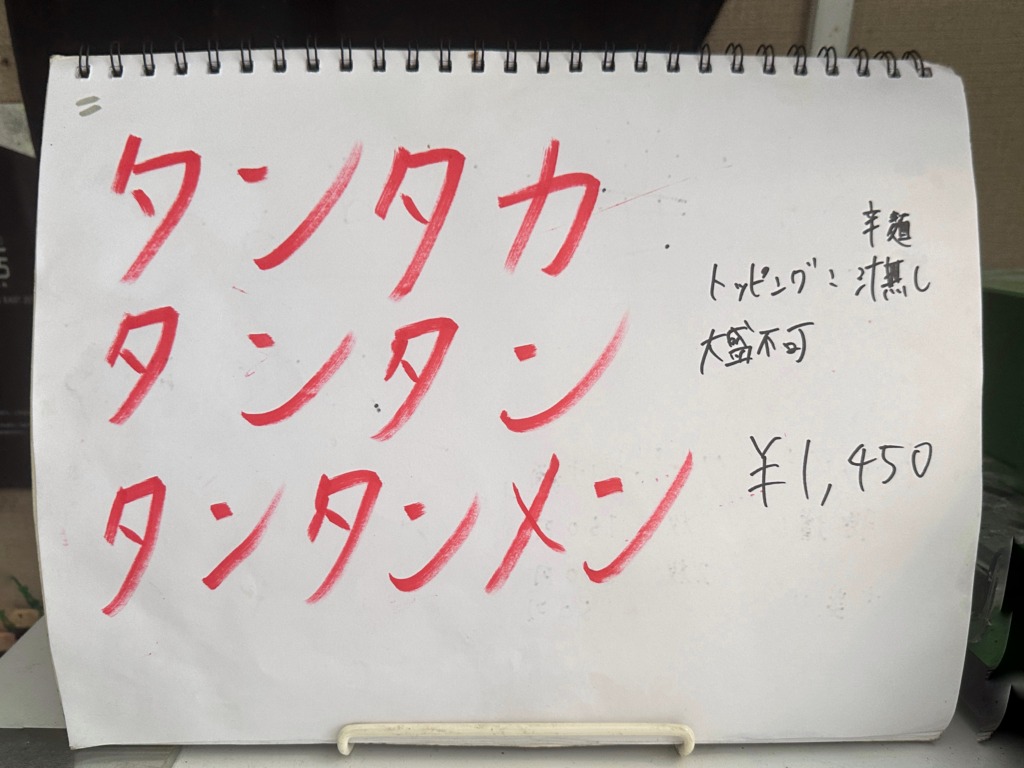 タンタカ
タンタン
タンタンメン
辛麺
トッピング:汁無し
大盛不可
¥1,450